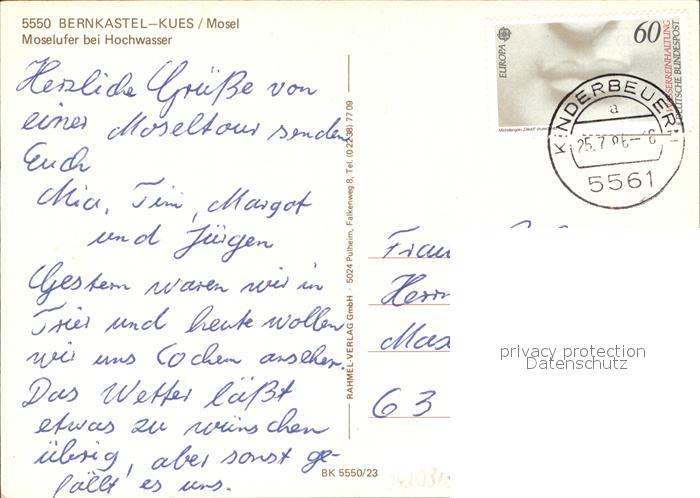 5550 BERNKASTEL–KUES / Mosel
Moselufer bei Hochwasser
Herzliche Grüße von
einer Moseltour senden
Euch
Mia, Tim, Margot
und Jürgen
Gestern waren wir in
Trier und heute wollen
wir uns Cochem ansehen.
Das Wetter läßt
etwas zu wünschen
übrig, aber sonst ge-
fällt es uns.
RAHMEL-VERLAG GmbH · 5024 Pulheim, Falkenweg 8, Tel. (0 22 38) 77 09
BK 5550/23
EUROPA
60
GEWÄSSERREINHALTUNG
DEUTSCHE BUNDESPOST
KINDERBEUERN
a
25.7.86
5561
Frau
Herrn
Max
63
privacy protection
Datenschutz